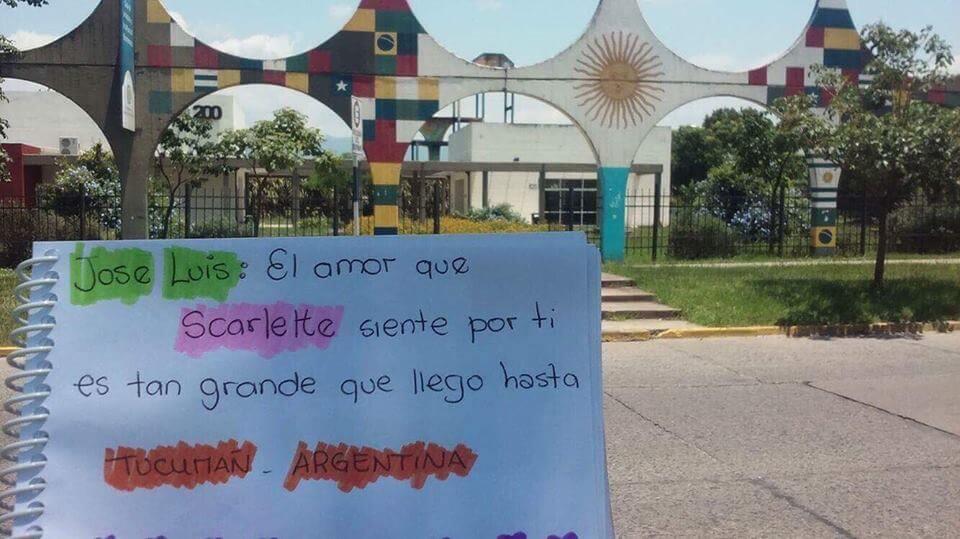 200
Jose Luis: El amor que
Scarlette siente por ti
es tan grande que llego hasta
TUCUMAÑ - ARGENTINA